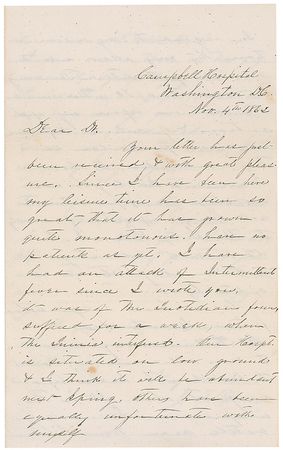 Campbell Hospital
Washington D.C.
Nov. 4th 1862
Dear Dr.
Your letter has just
been received & with great pleas
ure. Since I have been here
my leisure time has been so
great, that it has grown
quite monotonous. have no
patients as yet. I have
had an attack of Intermittent
fever since I wrote you,
it was of the Quotidian form,
suffered for a week, when
the Quinia
is situated on low ground
& I think it will be abundant
next Spring. Others have been
equally unfortunate with
myself